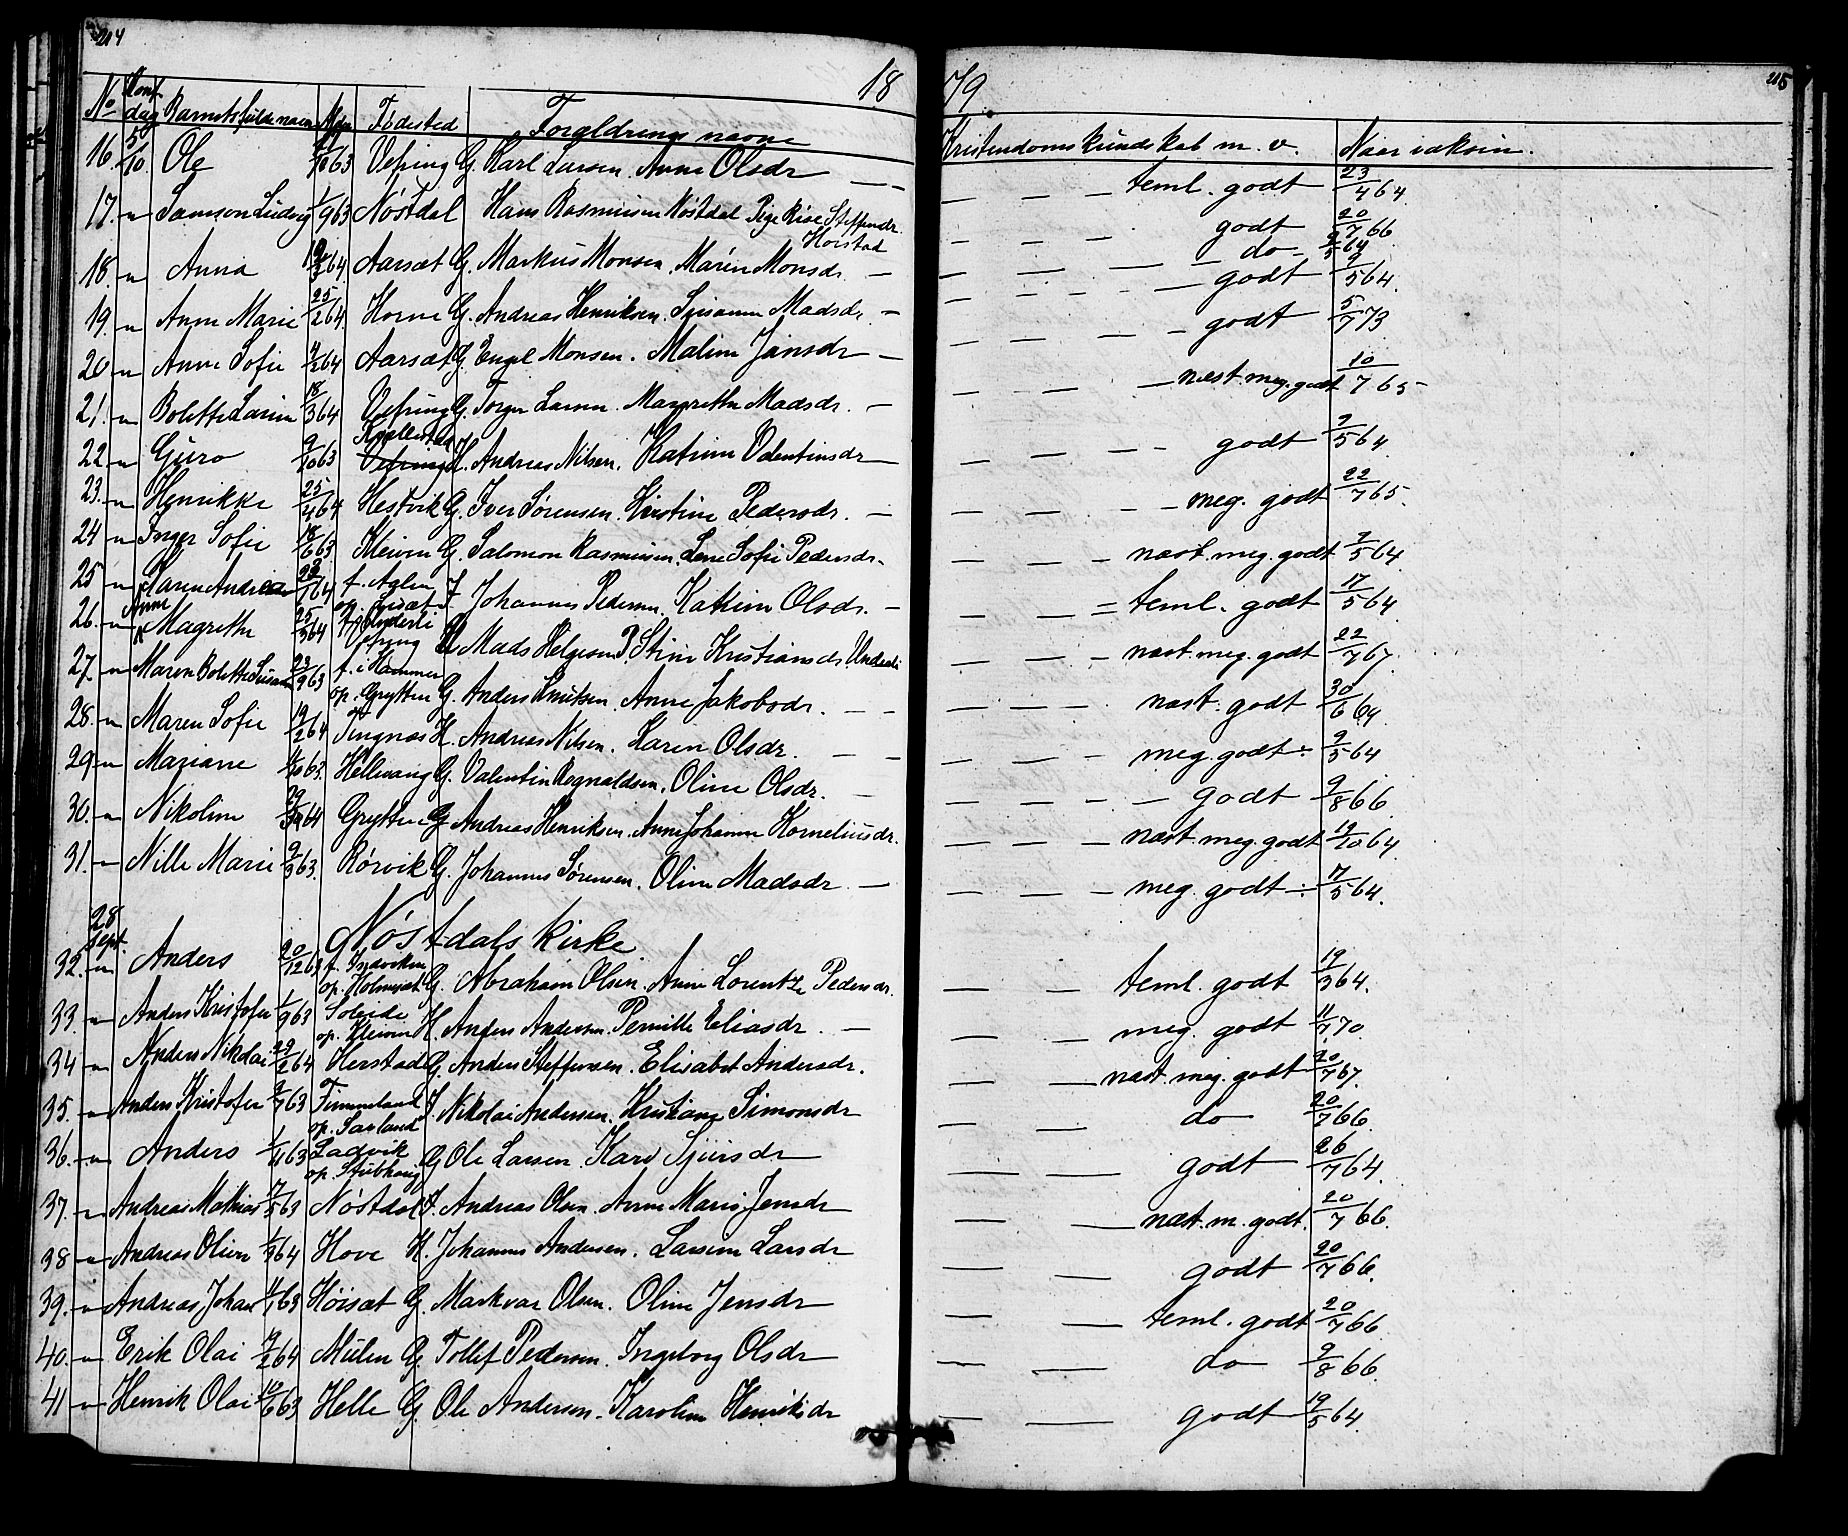 214
18 79.
215
No Konf. dag Barnets fulde navn Alder Födested Forældrenes navne Kristendomskundskab m. v. Naar vaksin.
16. 5/10. Ole /10 63 Vefring G. Karl Larsen. Anne Olsdr — — teml. godt 23/4 64.
17. " Samson Ludvig 1/9 63 Nöstdal Hans Rasmusen Nöstdal Pige Steffensdr. Horstad — godt 20/7 66
18. " Anna 64. Aarsæt G. Markus Monsen. Maren Monsdr. — do — 9/5 64
19. " Anne Marie 25/2 64. Horne G. Andreas Henriksen. Susanne Madsdr. — godt 9/5 64.
20 " Anne Sofie 4/2 64 Aarsæt G. Engel Monsen. Maline Jansdr — godt 5/7 73
21. " Bolette Larine 18/3 64 Vefring G. Torger Larsen. Margrethe Madsdr. — næst. meg. godt 10/7 65
22 " Guro 9/10 63 Vefring H. Andreas Nilsen. Katrine Valentinsdr — godt 9/5 64.
23. " Henrikke 25/4 64 Hestvik G. Iver Sörensen. Kirstine Pedersdr. — meg. godt 22/7 65.
24 " Inger Sofie 18/6 63 Kleiven G. Salomon Rasmusen. Lene Sofie Pedersdr. næst. meg. godt 9/5 64
25 " Karen Andrea 64 f. Aglen op. J. Johannes Pedersen. Katrine Olsdr. — teml. godt 17/5 64.
26. " Anne Magrethe 25/5 64 Underli Vefring Mads Helgesen P. Stine Kristiansdr. Underli næst. meg. godt 22/7 67.
27. " Maren Bolette Susanne 23/9 63 f. i Hammer op. Grytten G. Anders Knutsen. Anne Jakobsdr. — — næst. godt 30/6 69.
28. " Maren Sofie 19/2 64 Tingnæs H. Andreas Nilsen. Karen Olsdr. — meg. godt ÷ 9/5 64
29. " Mariane /10 63. Hellevang G. Valentin Regnaldsen. Oline Olsdr. — godt 9/8 66.
30. " Nikoline 29/3 64 Grytten G. Andreas Henriksen. Anne Johanne Korneliusdr. næst. meg. godt 19/10 64.
31. " Nille Marie 9/3 63. Rörvik G. Johannes Sörensen. Oline Madsdr. — meg. godt ÷ 17/5 64.
Nöstdals Kirke
28 sept.
32. " Anders 20/12 63 f. Indviken op. Holmesæt G. Abraham Olsen. Anne Lorentze Pedersdr. teml. godt 19/3 64.
33. " Anders Kristofer 1/9 63 Soleide op. Kleiven H. Anders Andersen. Pernille Eliasdr. — meg. godt 11/7 70
34 " Anders Nikolai 29/2 64 Herstad G. Anders Steffensen. Elisabet Andersdr. næst. meg. godt 20/7 67.
35. " Anders Kristofer 2/7 63 Timmeland op. Sarland J. Nikolai Andersen. Kristiane Simonsdr do 20/7 66.
36. " Anders 1/11 63 Ladvik op. Stubhaug G Ole Larsen. Kari Sjursdr godt 26/7 64.
37. " Andreas Mathias 7/5 63 Nöstdal J. Andreas Olsen. Anne Marie Jensdr næst. m. godt. 20/7 66.
38 " Andreas Oliver 1/3 64 Hove H. Johannes Andersen. Larsine Larsdr godt 20/7 66.
39. " Andreas Johan 11/1 63 Höisæt G. Markvar Olsen. Oline Jensdr teml. godt 20/7 66
40. " Erik Olai 9/2 64 Mulen G. Tollef Pedersen. Ingeborg Olsdr do 9/8 66.
41 " Henrik Olai 10/6 63 Helle G. Ole Andersen. Karoline Henriksdr godt 19/5 64.